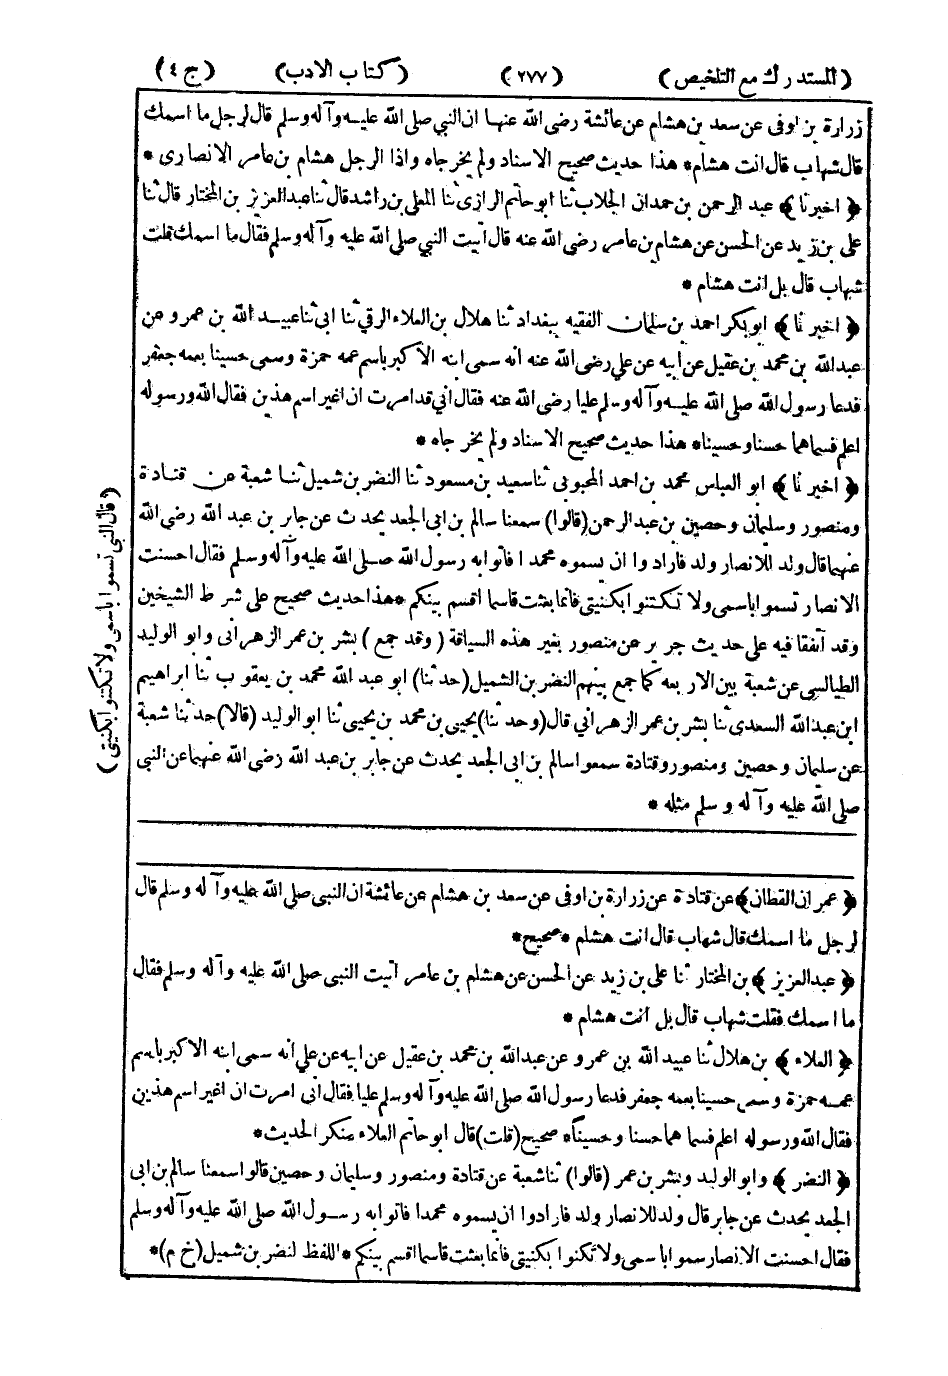 (المستدرك مع التلخيص) (٢٧٧) (كتاب الادب) (ج٤)
زرارة بن اوفى عن سعد بن هشام عن عائشة رضى الله عنها ان النبي صلى الله عليه وآله وسلم قال لرجل ما اسمك
قال شهاب قال انت هشام * هذا حديث صحيح الاسناد ولم يخرجاه واذا الرجل هشام بن عامر الانصارى *
﴿ اخبرنا ﴾ عبد الرحمن بن حمدان الجلاب ثنا ابو حاتم الرازى ثنا المعلى بن راشد قال ثنا عبد العزيز بن المختار قال ثنا
على بن زيد عن الحسن عن هشام بن عامر رضى الله عنه قال اتيت النبي صلى الله عليه وآله وسلم فقال ما اسمك قلت
شهاب قال بل انت هشام *
﴿ اخبرنا ﴾ ابو بكر احمد بن سلمان الفقيه ببغداد ثنا هلال بن العلاء الرقي ثنا ابى ثنا عبيد الله بن عمرو عن
عبد الله بن محمد بن عقيل عن ابيه عن علي رضى الله عنه انه سمى ابنه الاكبر باسم عمه حمزة وسمى حسينا بعمه جعفر
فدعا رسول الله صلى الله عليه وآله وسلم عليا رضى الله عنه فقال اني قد امرت ان اغير اسم هذين فقال الله ورسوله
اعلم فسماهما حسنا وحسينا * هذا حديث صحيح الاسناد ولم يخرجاه *
﴿ اخبرنا ﴾ ابو العباس محمد بن احمد المحبوبى ثنا سعيد بن مسعود ثنا النضر بن شميل ثنا شعبة عن قتادة
ومنصور وسليمان وحصين بن عبد الرحمن (قالوا) سمعنا سالم بن ابى الجعد يحدث عن جابر بن عبد الله رضى الله
عنهما قال ولد للانصار ولد فارادوا ان يسموه محمدا فاتوا به رسول الله صلى الله عليه وآله وسلم فقال احسنت
الانصار تسموا باسمى ولا تكتنوا بكنيتى فانما بعثت قاسما اقسم بينكم * هذا حديث صحيح على شرط الشيخين
وقد اتفقا فيه على حديث جرير عن منصور بغير هذه السياقة (وقد جمع) بشر بن عمر الزهرانى وابو الوليد
الطيالسى عن شعبة بين الاربعه كما جمع بينهم النضر بن الشميل (حدثنا) ابو عبد الله محمد بن يعقوب ثنا ابراهيم
ابن عبد الله السعدى ثنا بشر بن عمر الزهرانى قال (وحدثنا) يحيى بن محمد بن يحيى ثنا ابو الوليد (قالا) حدثنا شعبة
عن سليمان وحصين ومنصور وقتادة سمعوا سالم بن ابى الجعد يحدث عن جابر بن عبد الله رضى الله عنهما عن النبى
صلى الله عليه وآله وسلم مثله *
(قال النبى تسموا باسمى ولا تكتنوا بكنيتى)
﴿ عمران القطان ﴾ عن قتادة عن زرارة بن اوفى عن سعد بن هشام عن عائشة ان النبى صلى الله عليه وآله وسلم قال
لرجل ما اسمك قال شهاب قال انت هشام * صحيح *
﴿ عبد العزيز ﴾ بن المختار ثنا على بن زيد عن الحسن عن هشام بن عامر اتيت النبى صلى الله عليه وآله وسلم فقال
ما اسمك فقلت شهاب قال بل انت هشام *
﴿ العلاء ﴾ بن هلال ثنا عبيد الله بن عمرو عن عبد الله بن محمد بن عقيل عن ابيه عن علي انه سمى ابنه الاكبر باسم
عمه حمزة وسمى حسينا بعمه جعفر فدعا رسول الله صلى الله عليه وآله وسلم عليا فقال انى امرت ان اغير اسم هذين
فقال الله ورسوله اعلم فسماهما حسنا وحسينا * صحيح (قلت) قال ابو حاتم العلاء منكر الحديث *
﴿ النضر ﴾ وابو الوليد وبشر بن عمر (قالوا) ثنا شعبة عن قتادة ومنصور وسليمان وحصين قالوا سمعنا سالم بن ابى
الجعد يحدث عن جابر قال ولد للانصار ولد فارادوا ان يسموه محمدا فاتوا به رسول الله صلى الله عليه وآله وسلم
فقال احسنت الانصار سموا باسمى ولا تكنوا بكنيتى فانما بعثت قاسما اقسم بينكم * اللفظ لنضر بن شميل (خ م) *